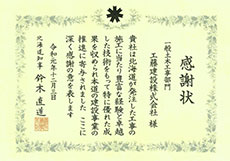 感謝状
一般土木工事部門
工藤建設株式会社 様
貴社は北海道が発注した工事の
施工に当たり豊富な経験と卓越
した技術をもって特に優れた成
果を収められ本道の建設事業の
推進に寄与されました ここに
深く感謝の意を表します
令和元年十二月三日
北海道知事 鈴木直道